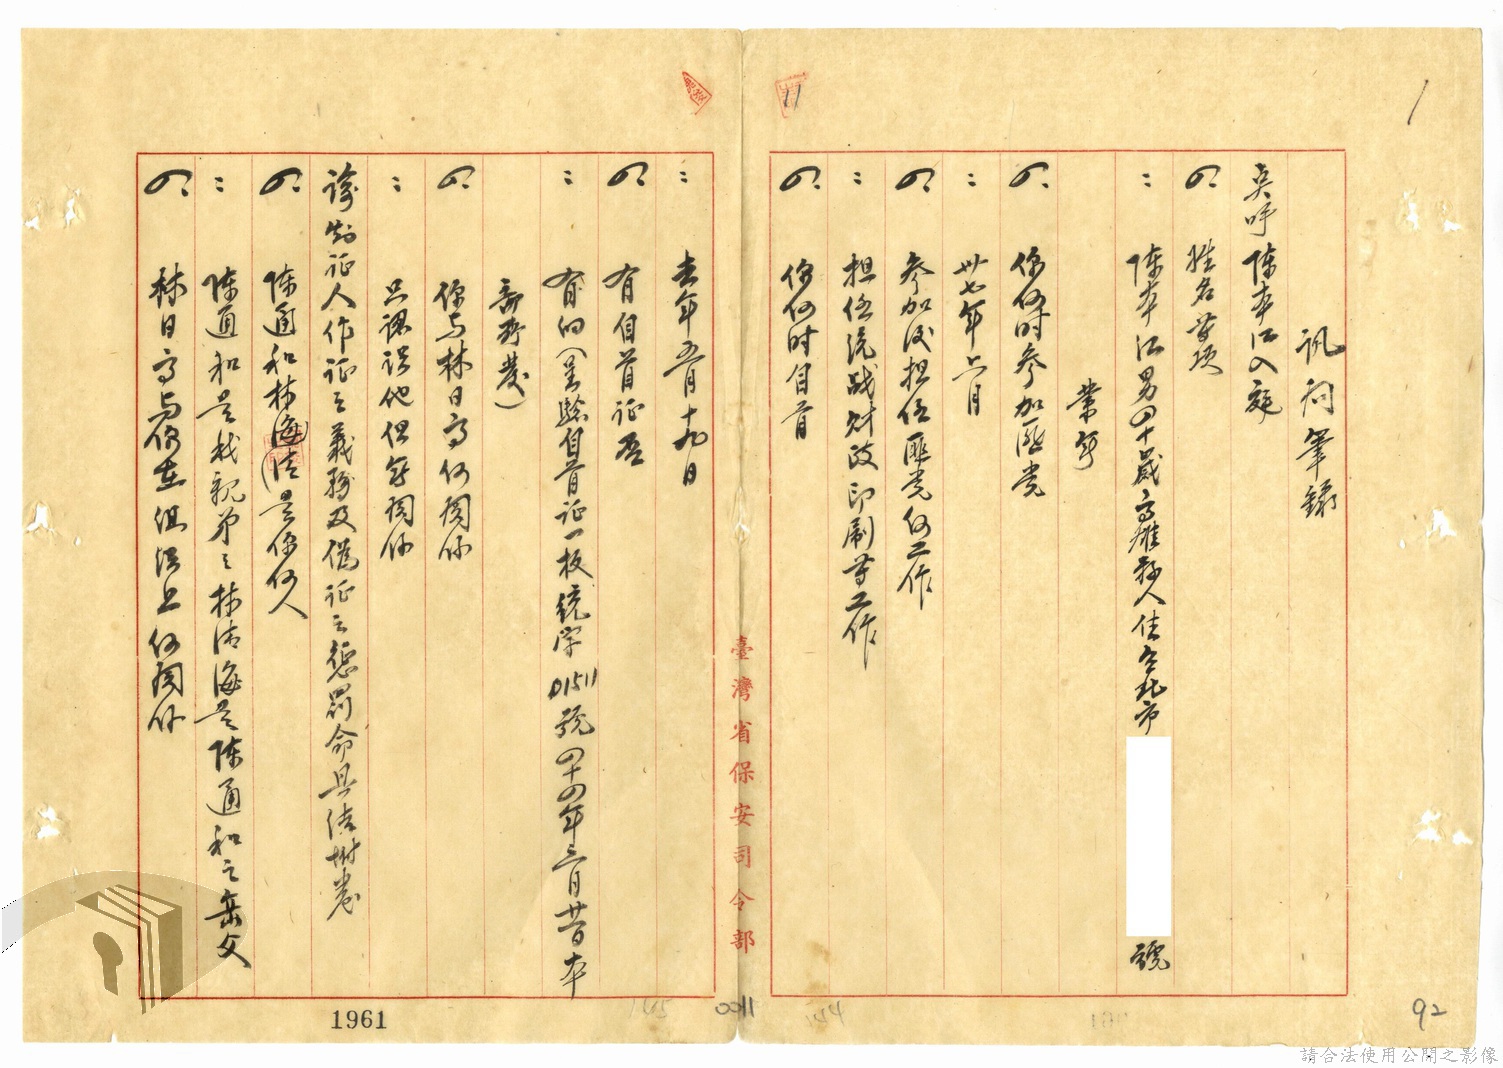 訊問筆錄
点呼陳本江入庭
問：姓名等項
：陳本江男四十歲高雄縣人住台北市
號
業無
問：你何时參加匪党
：卅七年六月
問：參加後担任匪党何工作
：担任統战财政印刷等工作
問：你何时自首
：去年五月十九日
問：有自首证否
：有的（呈驗自首证一枚統字01511號四十四年三月廿日本
部所發）
問：你与林日高何関係
：只認識他但無関係
諭知证人作证之義務及偽证之懲罰命具结附卷
問：陳通和林海清是你何人
：陳通和是我親弟弟林清海是陳通和之岳父
問：林日高与你在组织上何関係
臺灣省保安司令部
1961
0011
92
請合法使用公開之影像